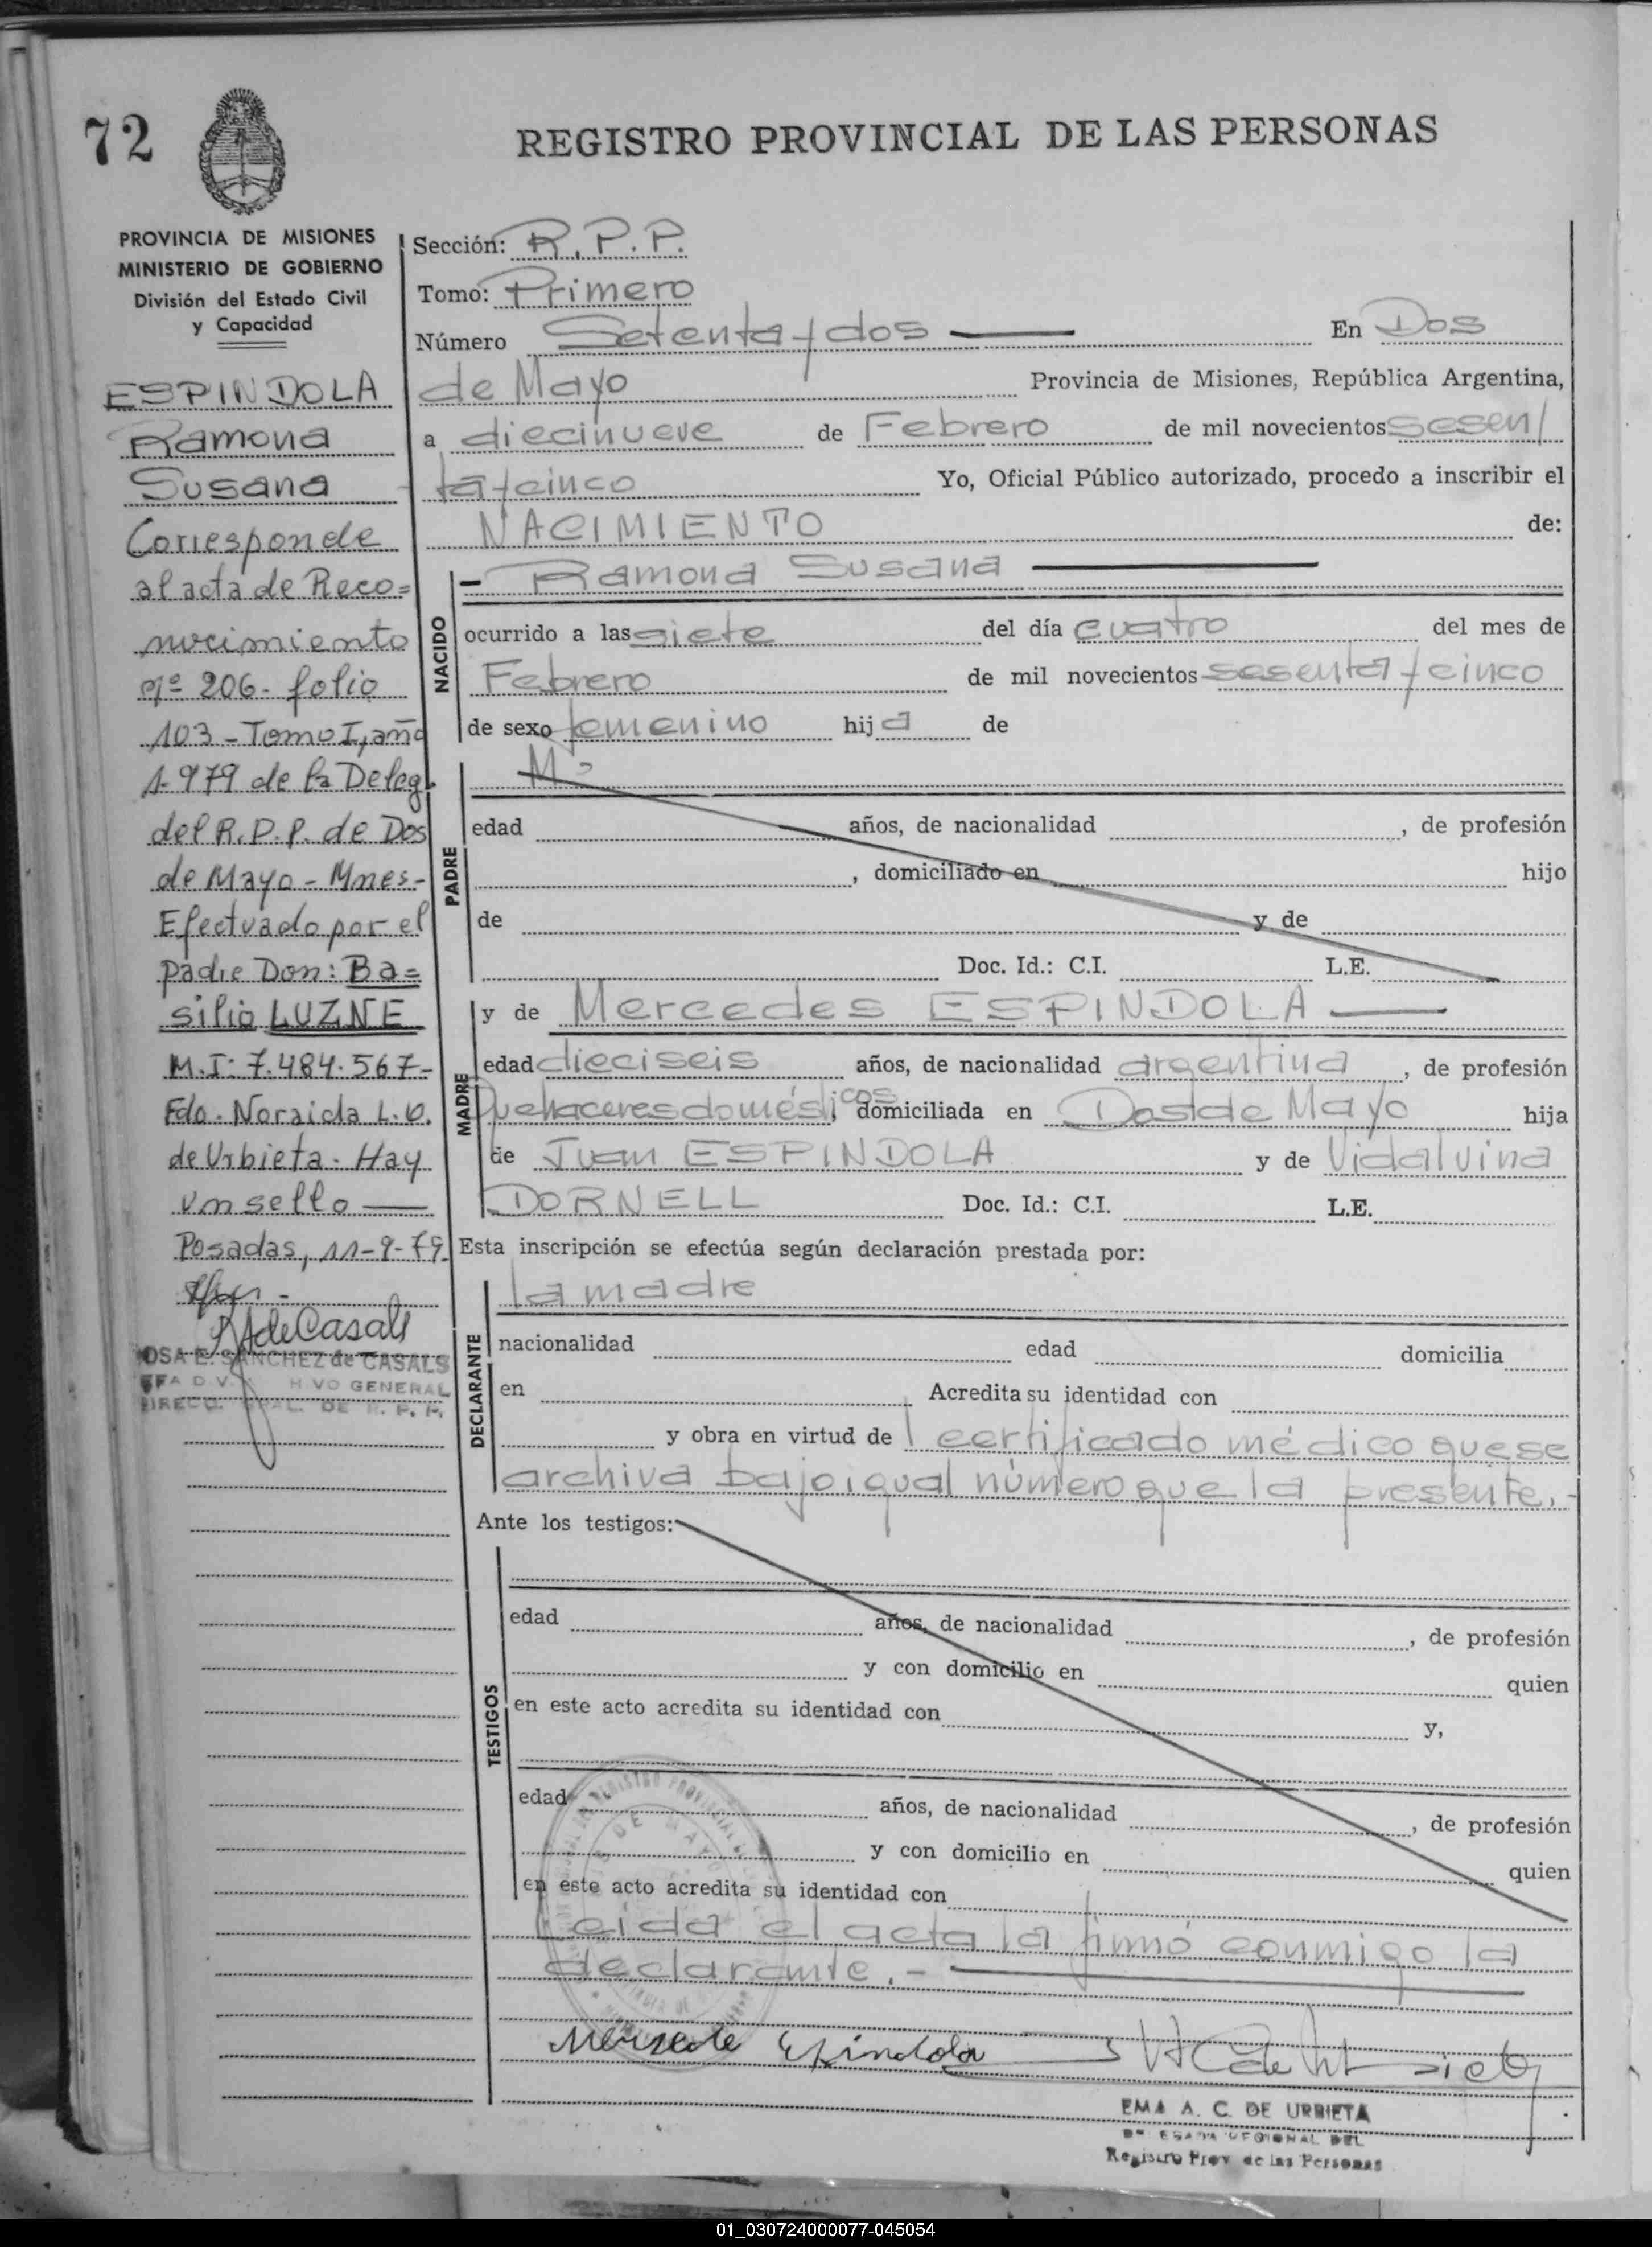 72
REGISTRO PROVINCIAL DE LAS PERSONAS
PROVINCIA DE MISIONES
MINISTERIO DE GOBIERNO
División del Estado Civil
y Capacidad
ESPINDOLA
Ramona
Susana
Corresponde
al acta de Reco=
nocimiento
nº 206- folio
103-Tomo I, año
1.979 de la Deleg.
del R.P.P. de Dos
de Mayo-Mnes-
Efectuado por el
padre Don: Ba=
silio LUZNE
M.I: 7.484.567-
Fdo. Noraida L.
de Urbieta. Hay
un sello —
Posadas, 11-9-79
deCasals
SANCHEZ de CASALS
GENERAL
Sección: R.P.P.
Tomo: Primero
Número Setenta y dos — En Dos
de Mayo Provincia de Misiones, República Argentina,
a diecinueve de Febrero de mil novecientos sesen/
ta y cinco Yo, Oficial Público autorizado, procedo a inscribir el
NACIMIENTO de:
NACIDO
- Ramona Susana —
ocurrido a las siete del día cuatro del mes de
Febrero de mil novecientos sesenta y cinco
de sexo femenino hija de
PADRE
edad años, de nacionalidad , de profesión
, domiciliado en hijo
de y de
Doc. Id.: C.I. L.E.
MADRE
y de Mercedes ESPINDOLA —
edad dieciseis años, de nacionalidad argentina , de profesión
Quehaceres domésticos, domiciliada en Dos de Mayo hija
de Juan ESPINDOLA y de Vidalvina
DORNELL Doc. Id.: C.I. L.E.
Esta inscripción se efectúa según declaración prestada por:
DECLARANTE
la madre
nacionalidad edad domicilia
en Acredita su identidad con
y obra en virtud de l certificado médico que se
archiva bajo igual número que la presente.-
Ante los testigos:
TESTIGOS
edad años, de nacionalidad , de profesión
y con domicilio en quien
en este acto acredita su identidad con y,
edad años, de nacionalidad , de profesión
y con domicilio en quien
en este acto acredita su identidad con
Leida el acta la firmó conmigo la
declarante.- —
Mersede Espindola
EMA A. C. DE URBIETA
REGIONAL DEL
Registro Prov de las Personas
01_030724000077-045054